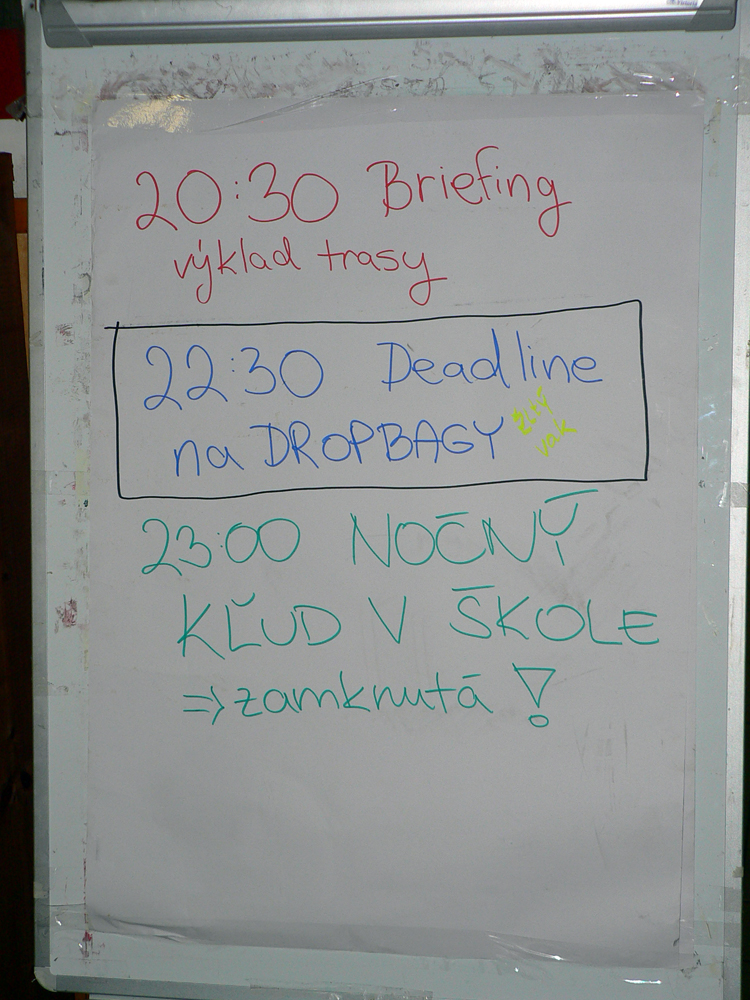 20:30 Briefing
výklad trasy
22:30 Deadline
na DROPBAGY žltý
vak
23:00 NOČNÝ
KĽUD V ŠKOLE
=> zamknutá !